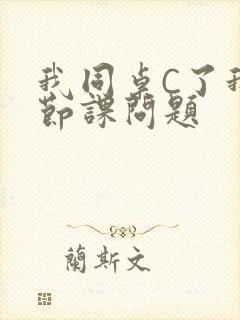 我同卓C了我
節課問題
蘭斯文